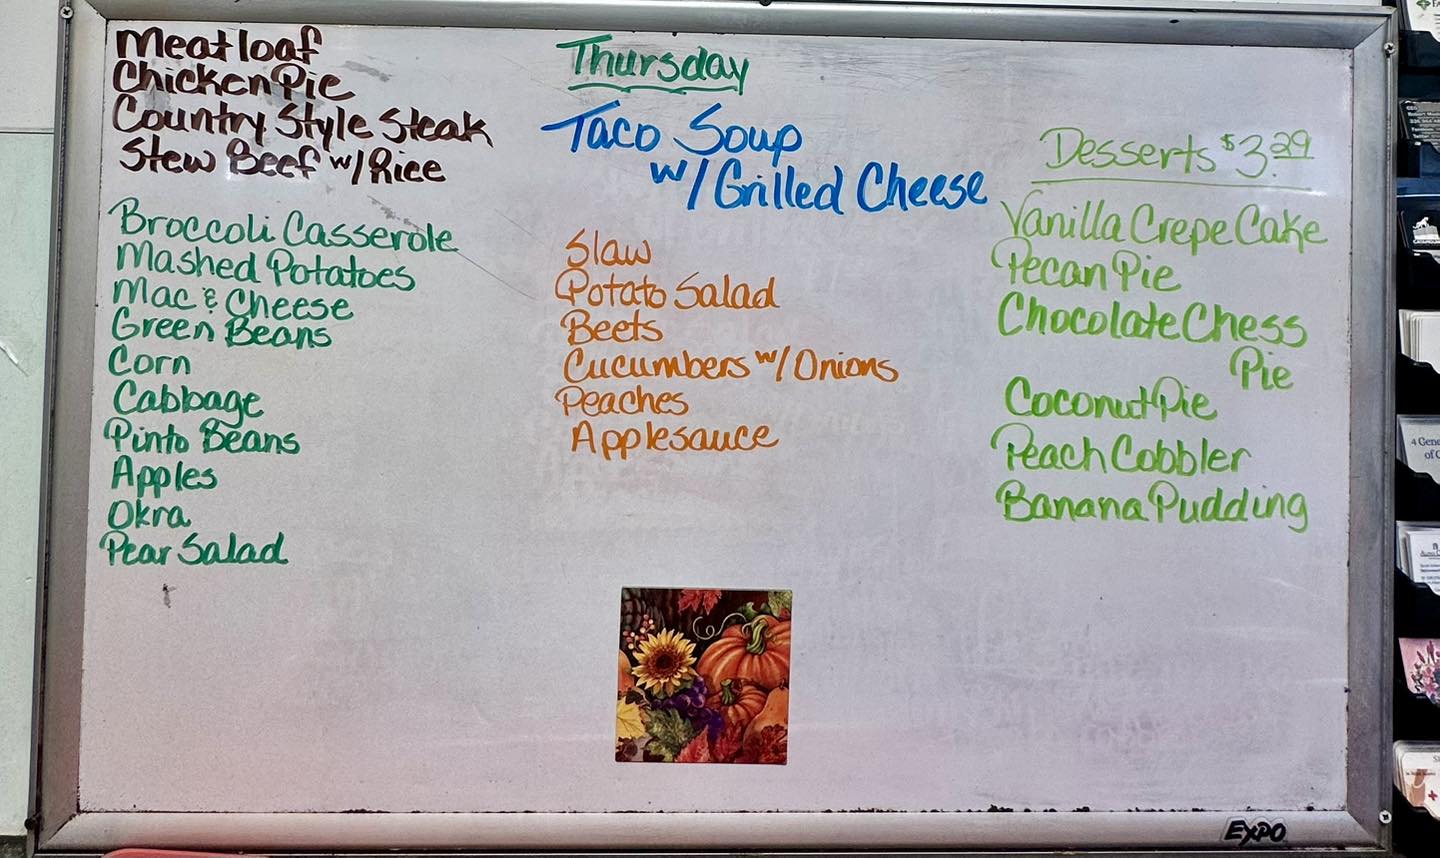 Meatloaf
Chicken Pie
Country Style Steak
Stew Beef w/ Rice
Broccoli Casserole
Mashed Potatoes
Mac & Cheese
Green Beans
Corn
Cabbage
Pinto Beans
Apples
Okra
Pear Salad
Thursday
Taco Soup
w/ Grilled Cheese
Slaw
Potato Salad
Beets
Cucumbers w/ Onions
Peaches
Applesauce
Desserts $3.29
Vanilla Crepe Cake
Pecan Pie
Chocolate Chess
Pie
Coconut Pie
Peach Cobbler
Banana Pudding
EXPO
4 Gene
of C